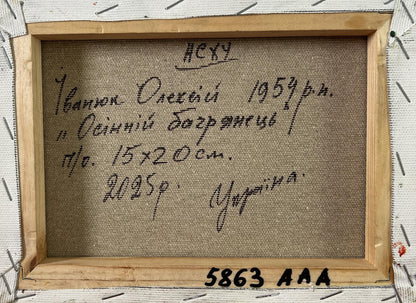 НСХУ
Іванюк Олексій 1954 р.н.
„Осінній багрянець"
п/о. 15х20см.
2025р.
Україна.
5863 ААА